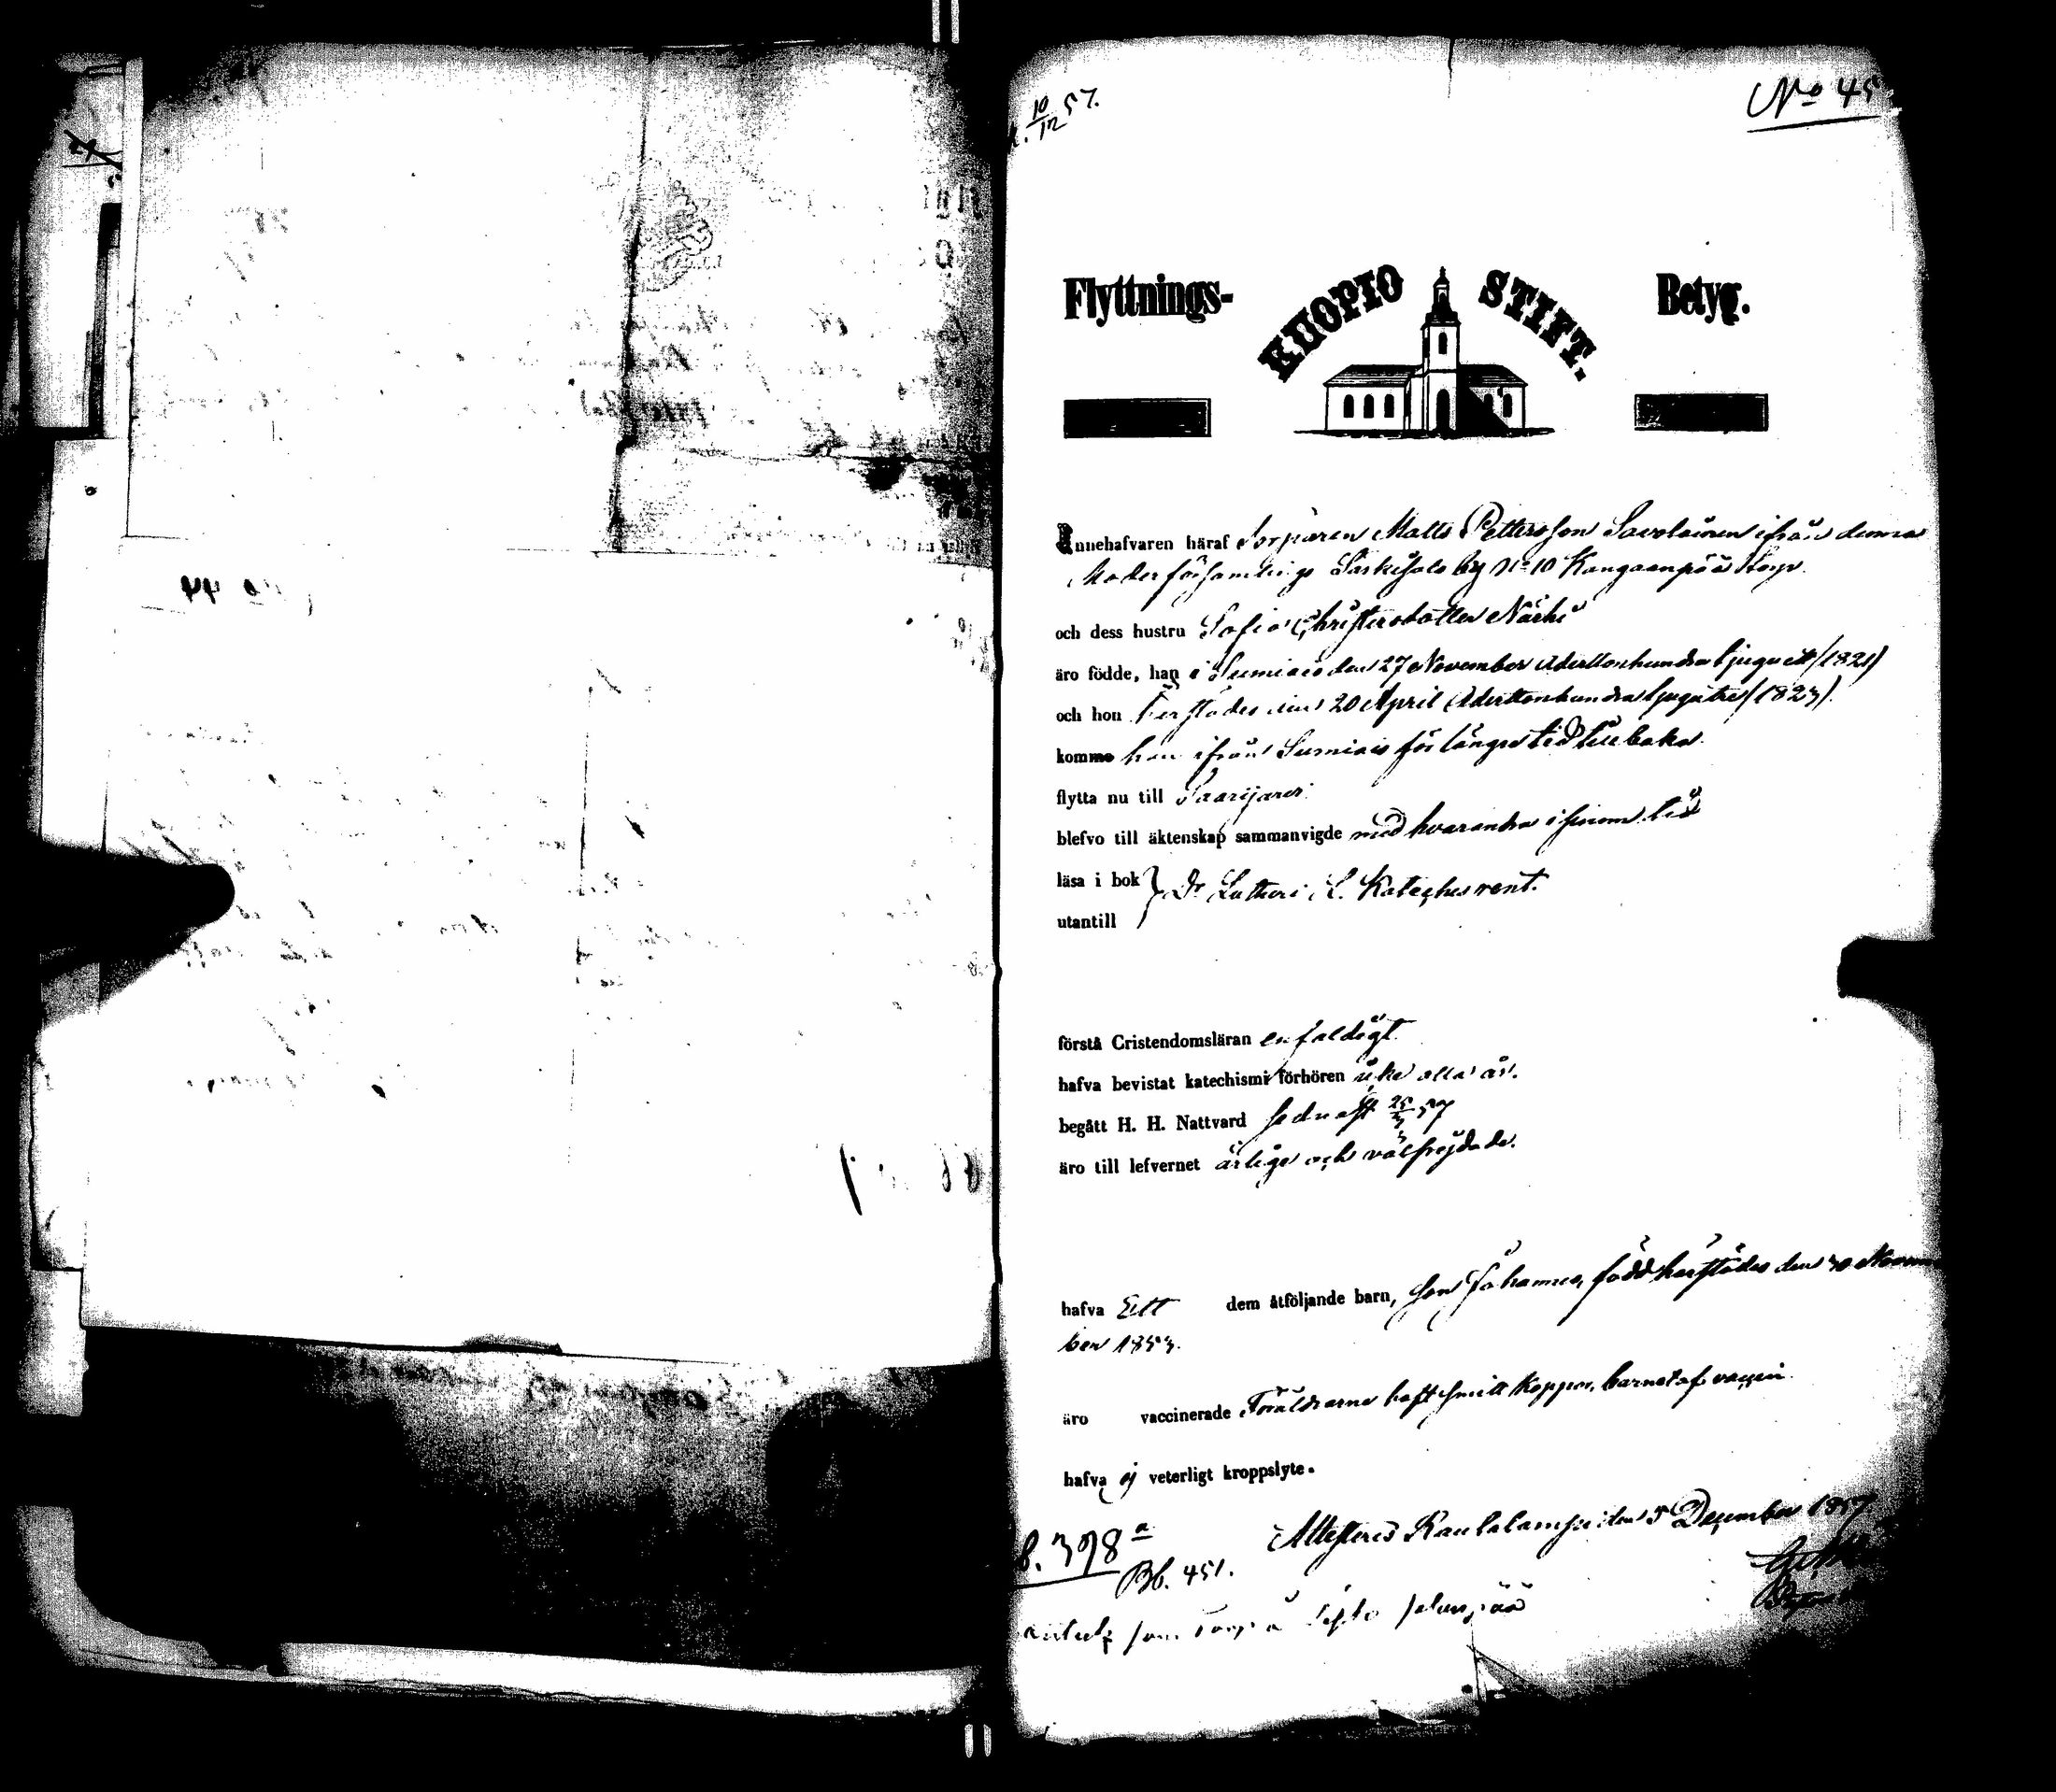 10/12 57.
No 45
Flyttnings- KUOPIO STIFT. Betyg.
Innehafvaren häraf Torparen Matts Pettersson Savolainen ifrån denna
Moderförsamlings Särkisalo by No 10 Kangaanpää Torp.
och dess hustru Sofia Christersdotter Närhi
äro födde, han i Sumiais den 27 November Adertonhundra tjuguett (1821)
och hon härstädes den 20 April Adertonhundra tjugutre (1823).
kommo han ifrån Sumiais för längre tid tillbaka.
flytta nu till Saarijärvi
blefvo till äktenskap sammanvigde med hvarandra i sinom tid
läsa i bok } Dr Lutheri L. Kateches rent.
utantill
förstå Cristendomsläran enfaldigt.
hafva bevistat katechismi förhören icke alla år.
begått H. H. Nattvard sednast 57
äro till lefvernet ärlige och välfrejdade.
hafva Ett dem åtföljande barn, son Johannes, född härstädes den 30 Novem
ber 1853.
äro vaccinerade Föräldrarne haft smittkoppor, barnet af vaccin.
hafva ej veterligt kroppslyte.
Attesteras Rautalampi den 5 December 1857
398 a
Bb. 451.
som Torp
No 44